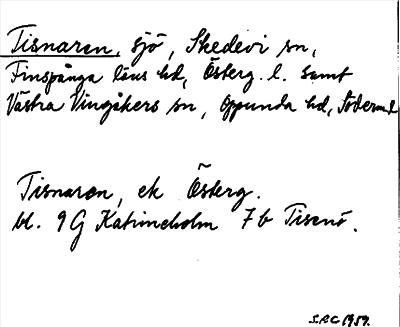 Tisnaren, sjö, Skedevi sn,
Finspånga läns hd, Österg. l. samt
Västra Vingåkers sn, Oppunda hd, Söderml
Tisnaren, ek Österg.
bl. 9G Katrineholm 7b Tisenö.
1959.